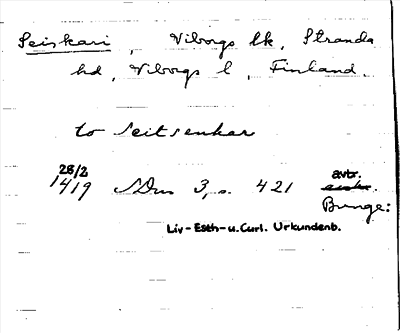 Seiskari, Viborgs lk, Stranda
hd, Viborgs l, Finland.
to Seitsenkar
28/2
1419 SDns 3, s. 421 avtr.
Bunge:
Liv-Esth-u.Curl. Urkundenb.